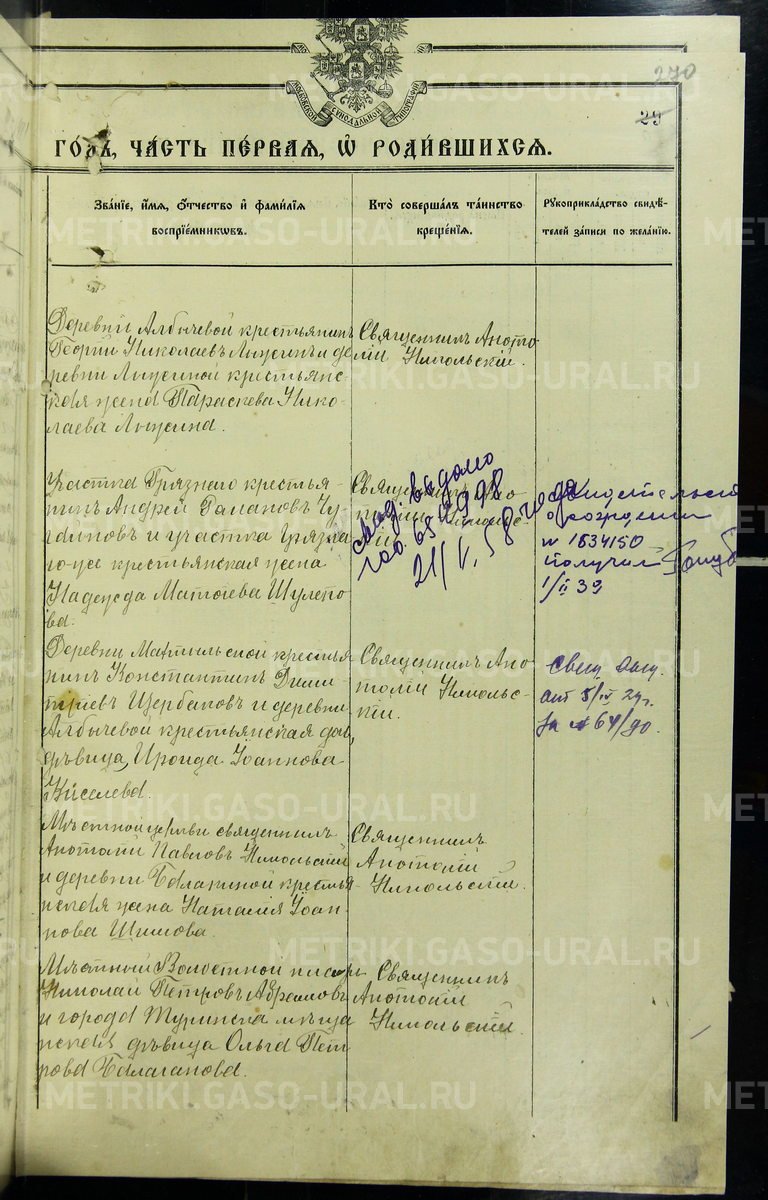 270
29
МОСКОВСКОЙ СѴНОДАЛЬНОЙ ТИПОГРАФІИ
ГОДЪ, ЧАСТЬ ПЕРВАЯ, Ѡ РОДИВШИХСЯ.
Званіе, имя, отчество и фамилія
воспріемниковъ.
Кто совершалъ таинство
крещенія.
Рукоприкладство свидѣ-
телей записи по желанію.
Деревни Албычевой крестьянинъ
Георгій Николаевъ и де
ревни крестьянс-
кая жена Параскева Нико-
лаева
Священникъ Анато
лій Никольскій.
Участка Грязнаго крестья-
нинъ Андрей
и участка Грязна
го-же крестьянская жена
Надежда Матѳеева Шулепо
ва.
Священникъ Ана
21/V. 58 года
о рождении
№ 1634150
получил
1/II 39
Деревни крестья
нинъ Константинъ Дими
тріевъ Щербаковъ и деревни
Албычевой крестьянская
дѣвица Ираида Іоаннова
Киселева.
Священникъ Ана
толій Никольс-
кій.
свид. выд.
за № 64/до.
Мѣстной церкви священникъ
Анатолій Павловъ Никольскій
и деревни крестья
нская жена Наталія Іоан-
нова
Священникъ
Анатолій
Никольскій.
Мѣстный Волостной писарь
Николай Петровъ Абрамовъ
и города Туринска мѣща
нская дѣвица Ольга Пет
рова
Священникъ
Анатолій
Никольскій.
METRIKI.GASO-URAL.RU